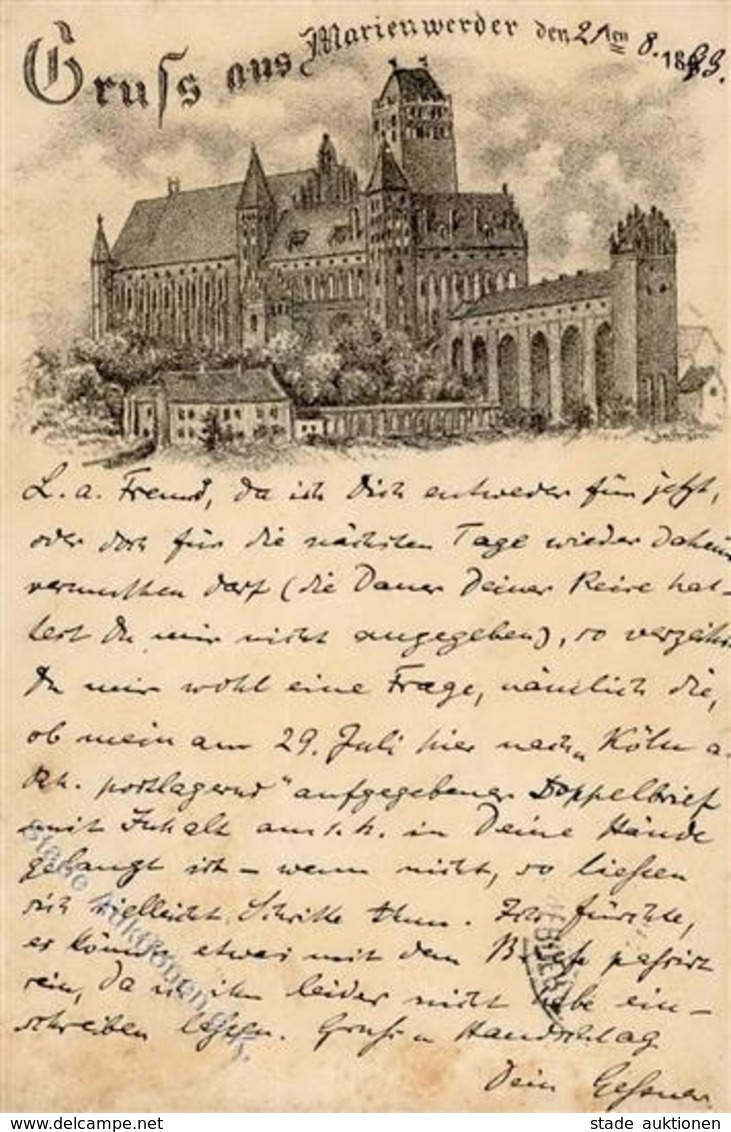 Gruss aus Marienwerder den 21ten 8. 1893.
L. a. Freund, da ich Dich entweder für jetzt,
oder doch für die nächsten Tage wieder daheim
vermuthen darf (die Dauer Deiner Reise hat-
test Du mir nicht angegeben), so verzeihe
Du mir wohl eine Frage, nämlich die,
ob mein am 29. Juli hier nach Köln a.
Rh. postlagernd" aufgegebener Doppelbrief
mit Inhalt am in Deine Hände
gelangt ist – wenn nicht, so liessen
sich vielleicht Schritte thun. Ich fürchte,
es könnte etwas mit dem Briefe passirt
sein, da ich ihn leider nicht habe ein-
schreiben lassen. Gruss u Handschlag
Dein Gessner.
stade auktionen
stade auktionen